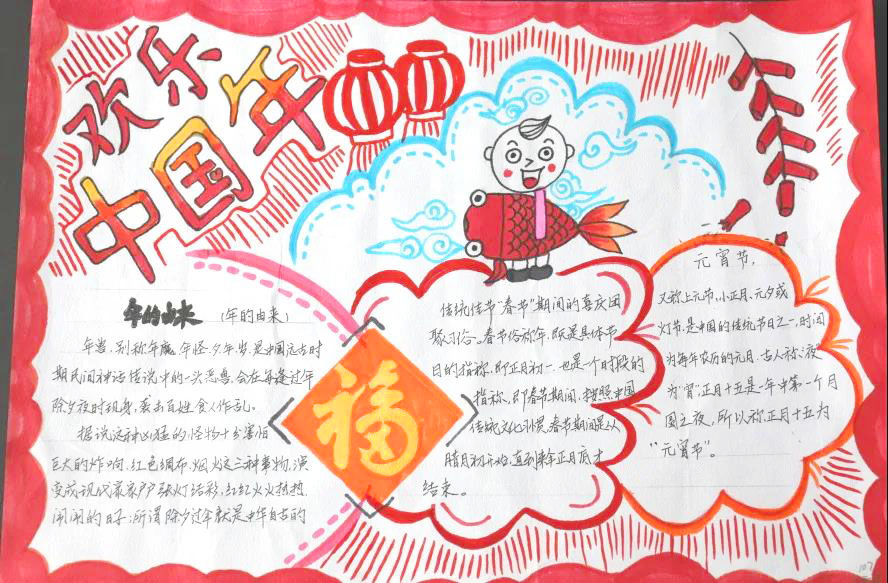 欢乐
中国年
年的由来 （年的由来）
年兽，别称年魔、年怪、夕、年岁，是中国远古时
期民间神话传说中的一头恶兽，会在每逢过年
除夕夜时现身，袭击百姓食人作乱。
据说这种凶猛的怪物十分害怕
巨大的炸响、红色绸布、烟火这三种事物，演
变成现代家家户户张灯结彩，红红火火热热
闹闹的日子；所谓除夕过年就是中华自古的
福
传统佳节“春节”期间的喜庆团
聚习俗。春节俗称年，既是具体节
日的指称，即正月初一，也是一个时段的
指称，即春节期间，按照中国
传统文化习惯，春节期间是从
腊月初开始，直到来年正月底才
结束。
元宵节，
又称上元节，小正月、元夕或
灯节，是中国的传统节日之一，时间
为每年农历的元月，古人称“夜”
为“宵”，正月十五是一年中第一个月
圆之夜，所以称正月十五为
“元宵节”。